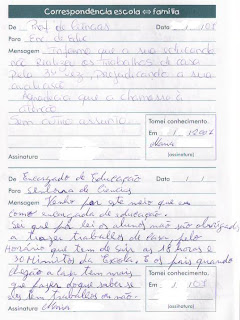 Correspondência escola ⇔ família
De Prof de Ciências Data / / 05
Para Enc de Educ
Mensagem Informo que a sua educanda
não realizou os trabalhos de casa
pela 3ª vez, prejudicando a sua
avaliação
Agradecia que a chamasse à
atenção
Sem outro assunto
Tomei conhecimento.
Em / / 2005
Maria
Assinatura (assinatura)
De Encarregado de Educação Data / /
Para senhora de Ciencias
Mensagem Venho por este meio que eu
como encarregada de educação.
Sei que por lei os alunos não são obrigados
a trazer trabalhos de casa pelo
Horário que tem de sair as 18 horas e
30 Minutos da Escola. E os pais quando
chegão a casa tem mais
que fazer do que saber se
eles tem trabalhos ou não.
Tomei conhecimento.
Em / / 05
Assinatura Maria (assinatura)